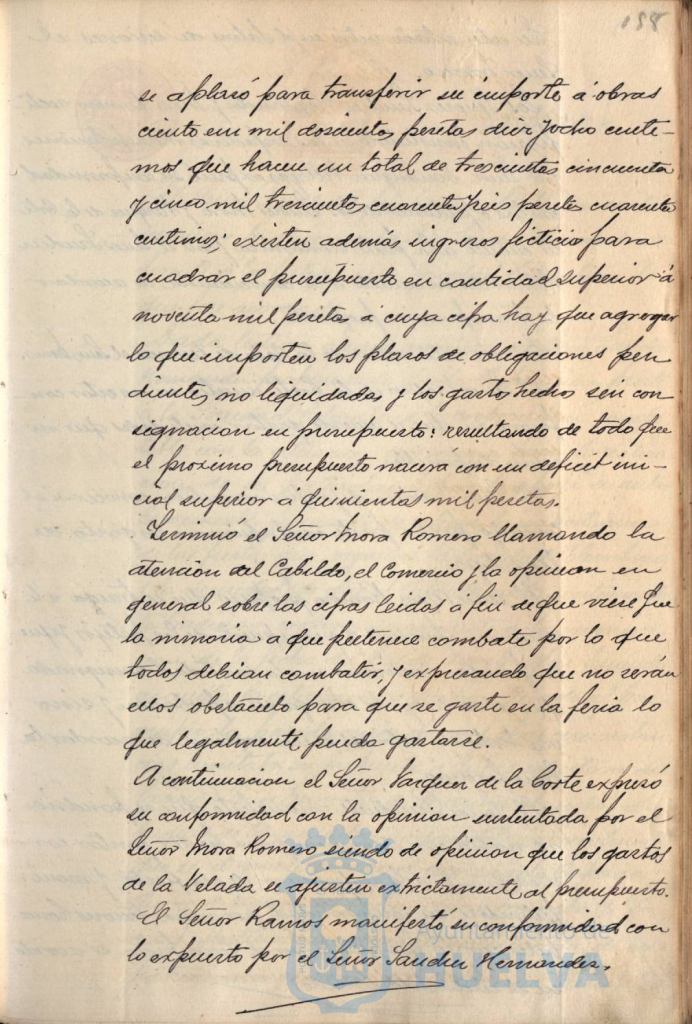 158
se aplasó para transferir su importe á obras
ciento un mil doscientas pesetas diez y ocho centi-
mos que hacen un total de trescientas cincuenta
y cinco mil trescientas cuarenta y seis pesetas cuarenta
centimos; existen además ingresos ficticios para
cuadrar el presupuesto en cantidad superior á
noventa mil pesetas á cuya cifra hay que agregar
lo que importen los plasos de obligaciones pen
dientes no liquidadas y los gastos hechos sin con
signacion en presupuesto: resultando de todo que
el proximo presupuesto nacerá con un deficit ini-
cial superior á quinientas mil pesetas.
Terminó el Señor Mora Romero llamando la
atencion del Cabildo, el Comercio y la opinion en
general sobre las cifras leidas á fin de que viese que
la minoria á que pertenece combate por lo que
todos debian combatir, y expresando que no serán
ellos obstáculo para que se gaste en la feria lo
que legalmente pueda gastarse.
A continuacion el Señor Vazquez de la Corte expresó
su conformidad con la opinion sustentada por el
Señor Mora Romero siendo de opinion que los gastos
de la Velada se ajusten extrictamente al presupuesto.
El Señor Ramos manifestó su conformidad con
lo expuesto por el Señor Sanchez Hernandez.
Ayuntamiento de
HUELVA